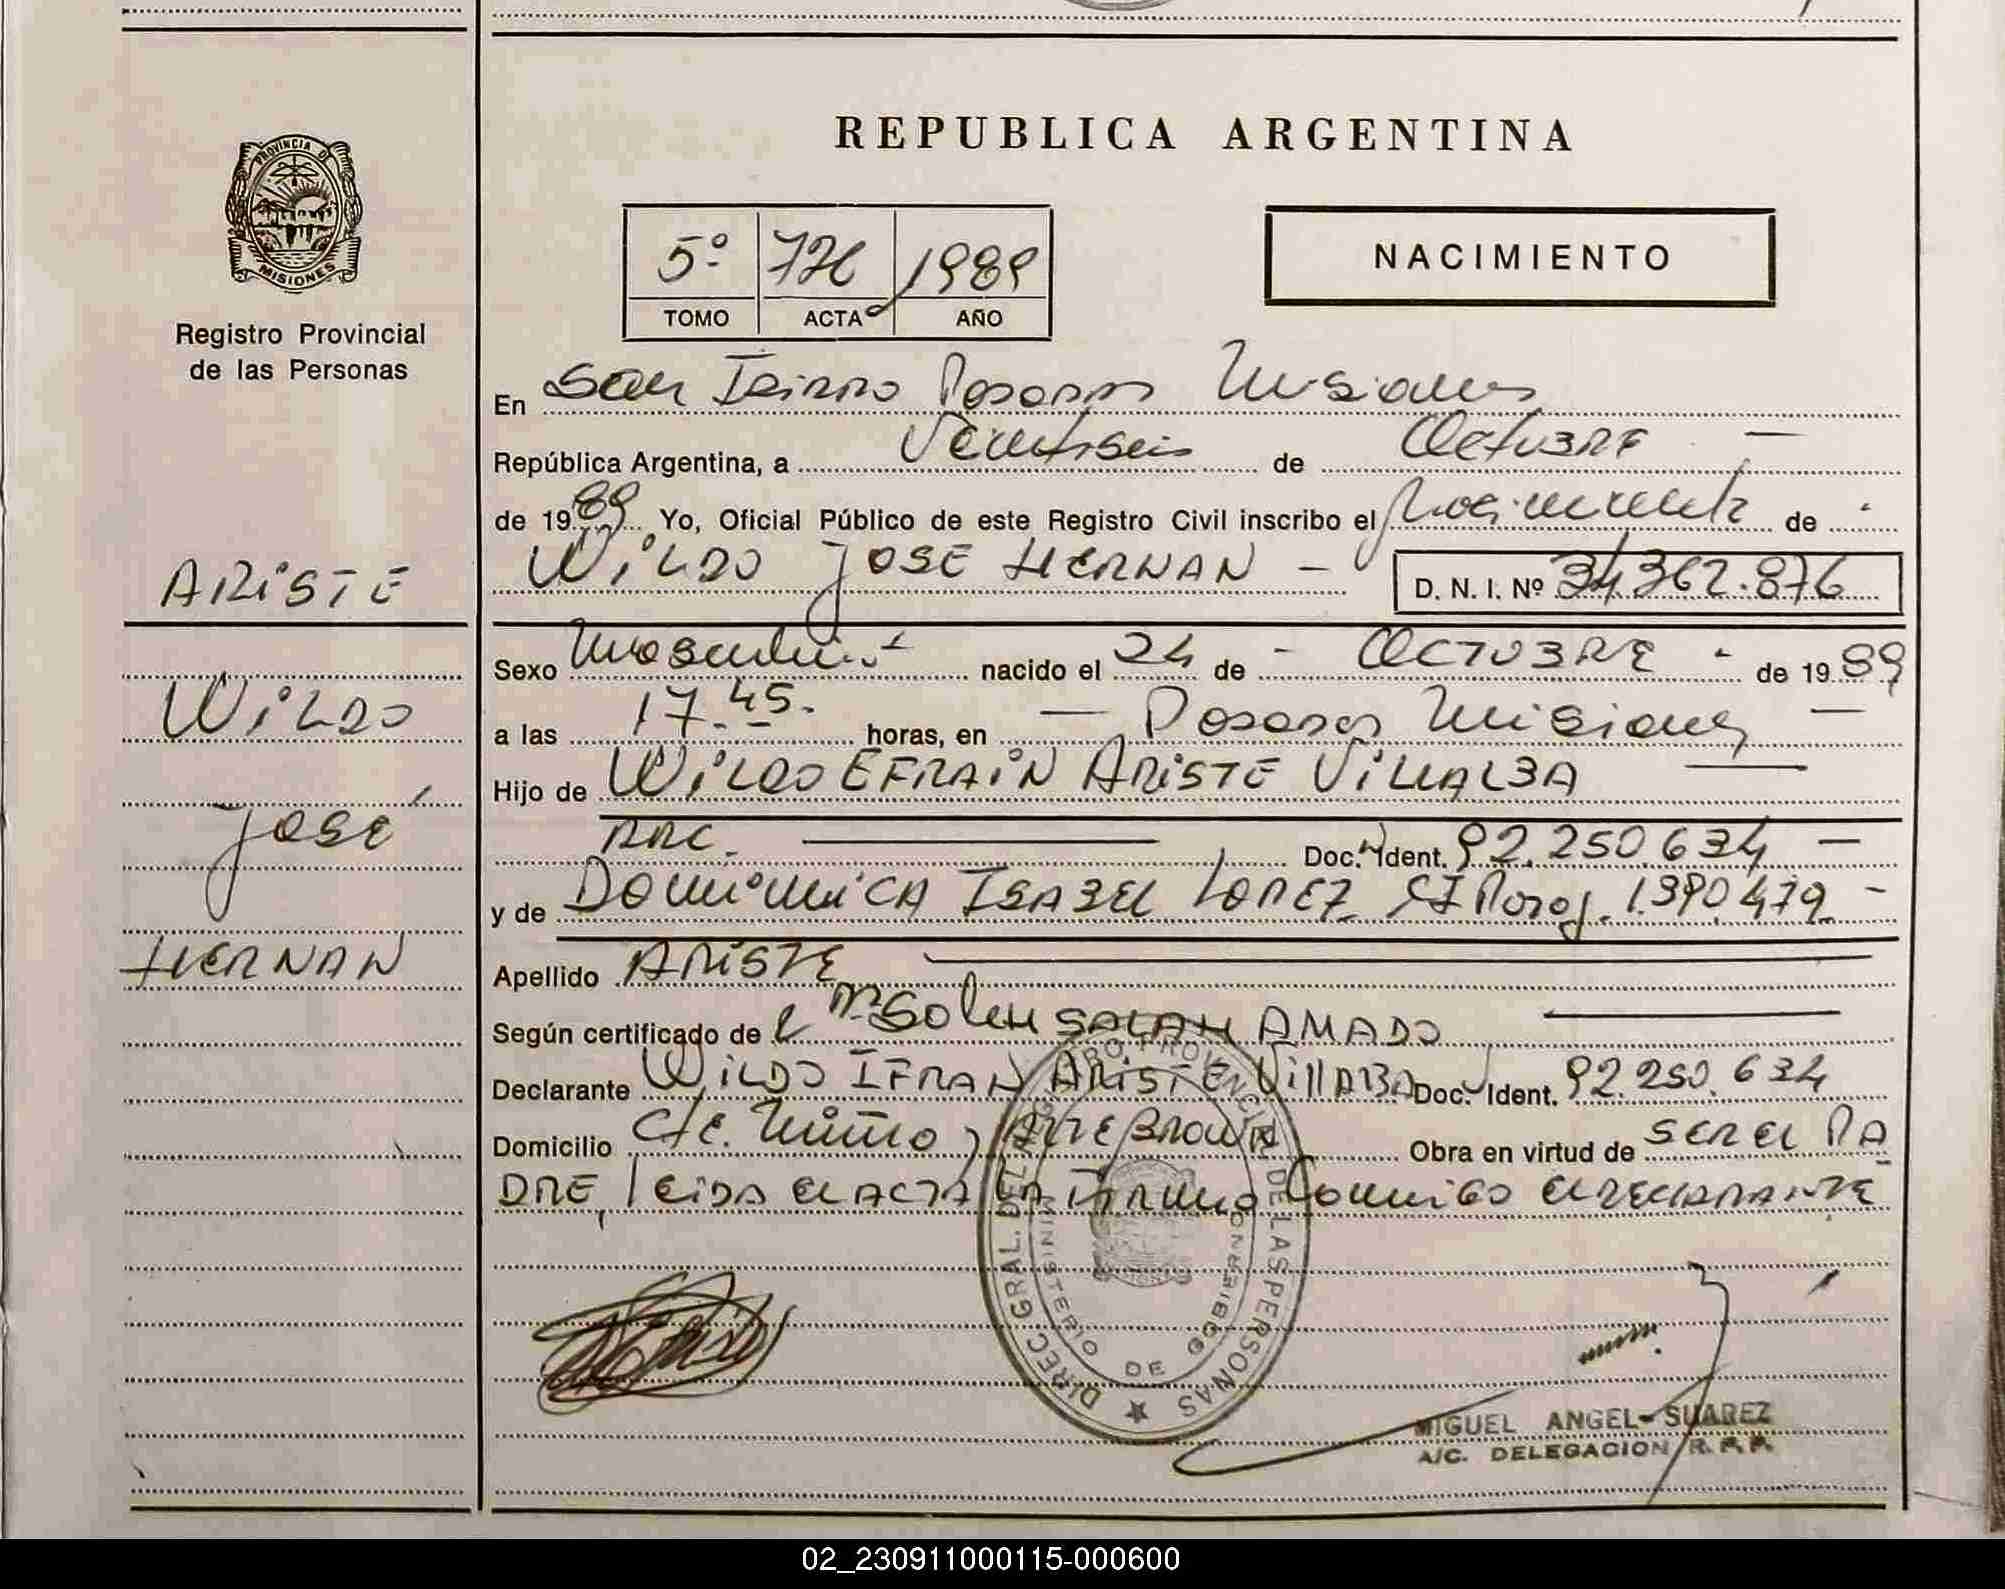 PROVINCIA DE
MISIONES
Registro Provincial
de las Personas
ARISTE
WILDO
José
HERNAN
REPUBLICA ARGENTINA
5º 726 1989
TOMO ACTA AÑO
NACIMIENTO
En San Isidro Posadas Misiones
República Argentina, a Veintiseis de Octubre —
de 1989 Yo, Oficial Público de este Registro Civil inscribo el Nacimiento de
WILDO JOSE HERNAN — D. N. I. Nº 34.362.876
Sexo Masculino nacido el 24 de - OCTUBRE - de 1989
a las 17.45. horas, en — Posadas Misiones —
Hijo de WILDO EFRAIN ARISTE VILLALBA —
Doc. Ident. 92.250.634 —
y de DOMINICA ISABEL LOPEZ CI 1.390.479 -
Apellido ARISTE
Según certificado de SALAH AMADO
Declarante WILDO IFRAN ARISTE VillALBA Doc. Ident. 92.250.634
Domicilio Alte BROWN Obra en virtud de SER EL PA
DRE, leida el ACTA LA FIRMA Conmigo el DECLARANTE
DIREC. GRAL. DEL REGISTRO PROVINCIAL DE LAS PERSONAS
MINISTERIO DE GOBIERNO
MIGUEL ANGEL SUAREZ
A/C. DELEGACION R. P. P.
02_230911000115-000600